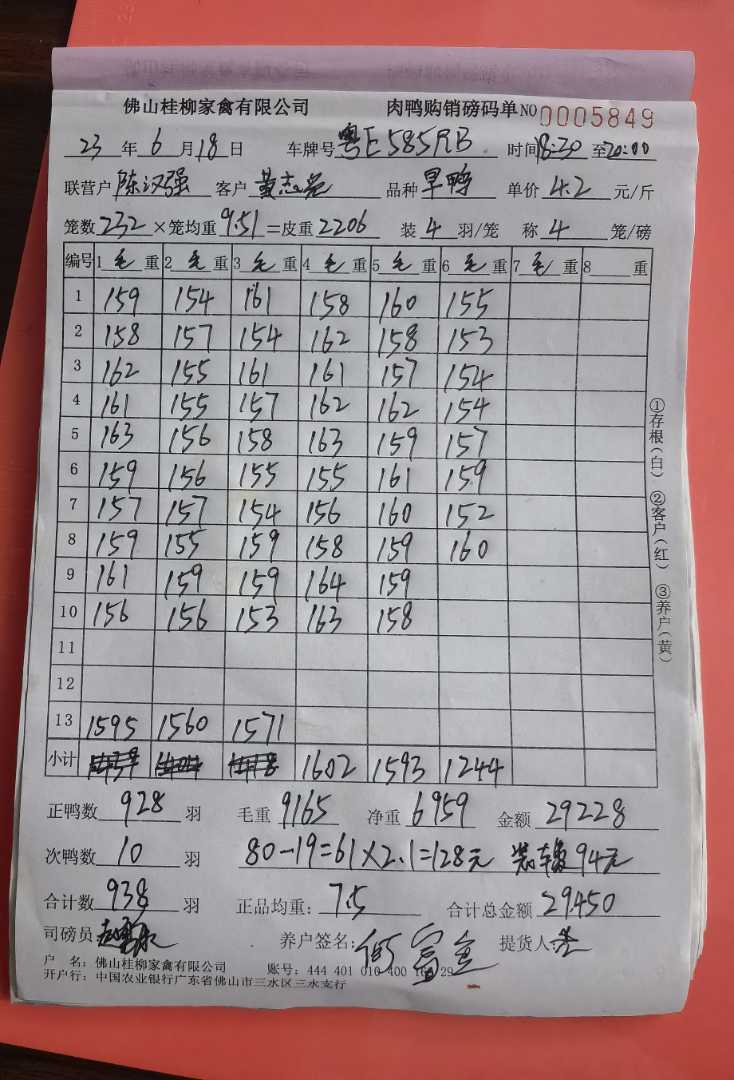 佛山桂柳家禽有限公司 肉鸭购销磅码单 NO 0005849
23 年 6 月 18 日 车牌号 粤E585RB 时间 18:30 至 20:00
联营户 陈汉强 客户 黄志 品种 旱鸭 单价 4.2 元/斤
笼数 232 ×笼均重 9.51 =皮重 2206 装 4 羽/笼 称 4 笼/磅
编号 1 毛 重 2 毛 重 3 毛 重 4 毛 重 5 毛 重 6 毛 重 7 毛 重 8 重
1 159 154 161 158 160 155
2 158 157 154 162 158 153
3 162 155 161 161 157 154
4 161 155 157 162 162 154
5 163 156 158 163 159 157
6 159 156 155 155 161 159
7 157 157 154 156 160 152
8 159 155 159 158 159 160
9 161 159 159 164 159
10 156 156 153 163 158
11
12
13 1595 1560 1571
小计 1602 1593 1244
正鸭数 928 羽 毛重 9165 净重 6959 金额 29228
次鸭数 10 羽 80-19=61×2.1=128元 装车 94元
合计数 938 羽 正品均重: 7.5 合计总金额 29450
司磅员 养户签名: 何富 提货人
户 名: 佛山桂柳家禽有限公司 账号: 444 401 010 400 29
开户行: 中国农业银行广东省佛山市三水区三水支行
①存根(白) ②客户(红) ③养户(黄)